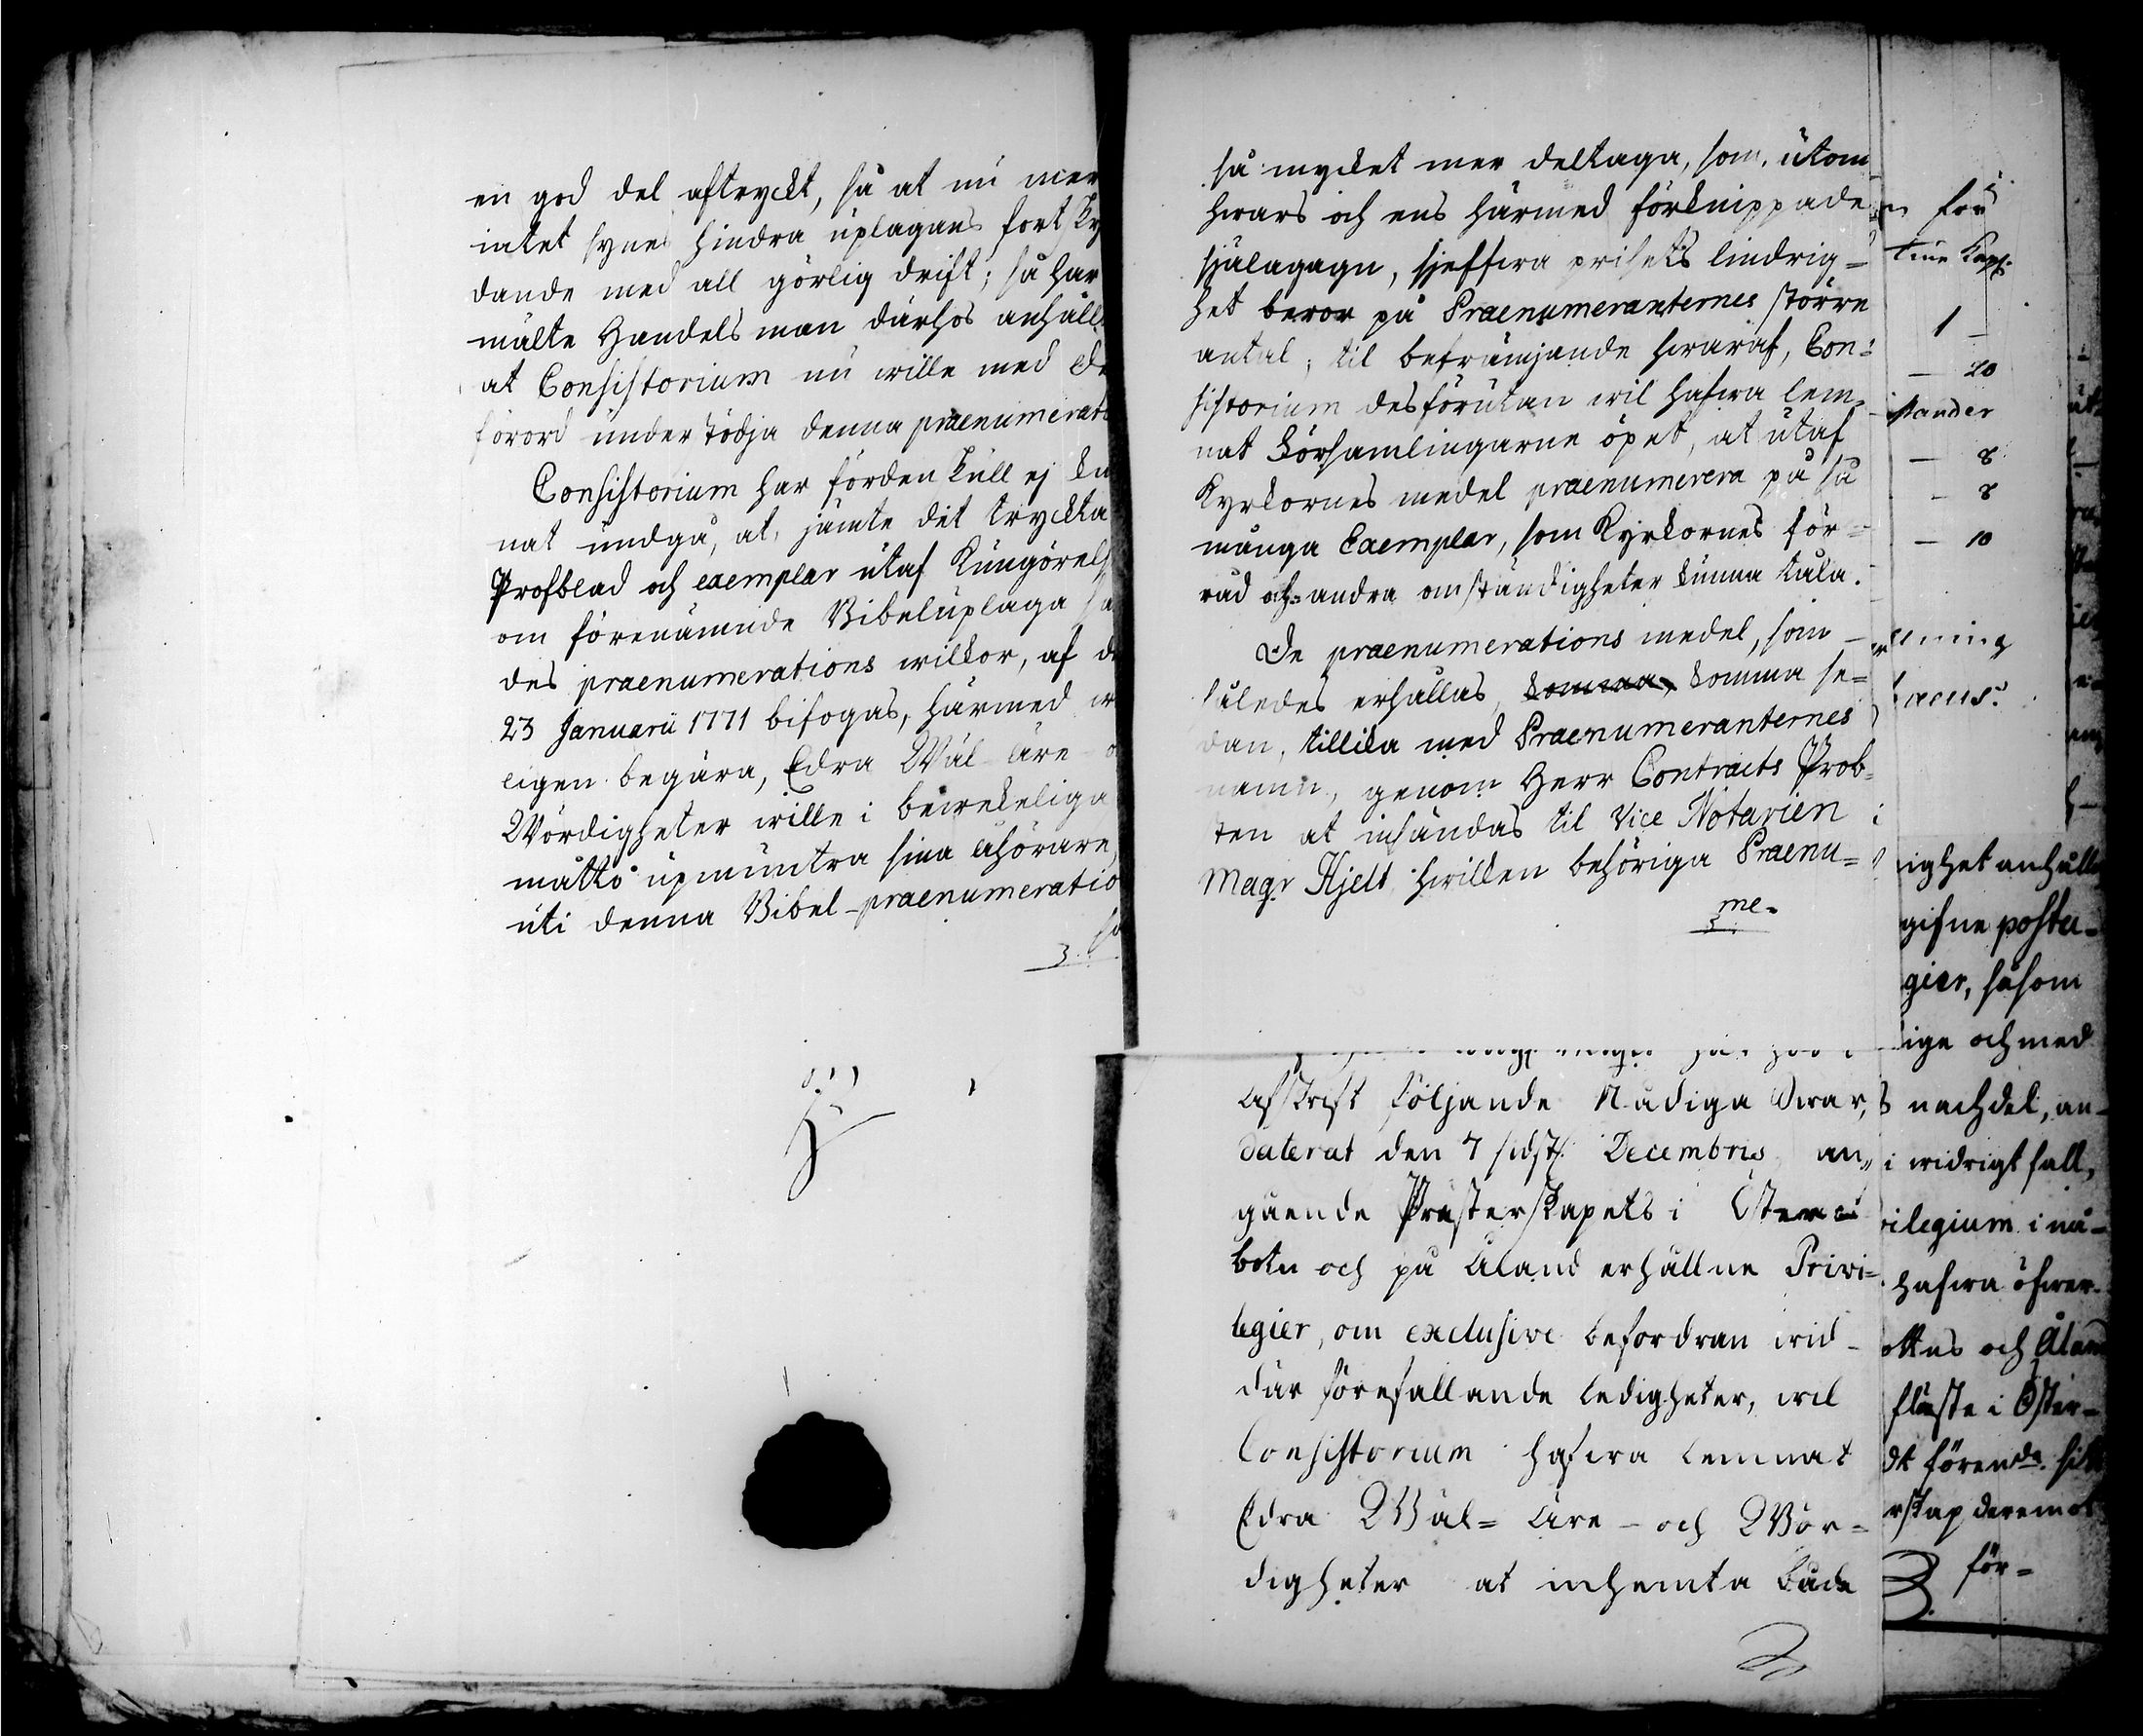 en god del aftryckt, så at nu mer
intet synes hindra uplagans fortsky
dande med all görlig drift; så har
mälte Handelsman därhos anhåll
at Consistorium nu wille med de
förord understödja denna praenumerat
Consistorium har fördenskull ej kun
nat undgå, at, jämte det tryckta
Profblad och exemplar utaf Kungörels
om förenämnde Bibeluplaga sa
des praenumerations wilkor, af d
23 Januarii 1771 bifogas, härmed w
ligen begära, Edra Wäl- äre- o
Wördigheter wille i bewekeliga
måtto upmuntra sina Åhörare,
uti denna Bibel-praenumeratio
så
så mycket mer deltaga, som, utom
hwars och ens härmed förknippade
själagagn, sjelfwa prisets lindrig=
het beror på Praenumeranternes större
antal; til befrämjande hwaraf, Con=
sistorium desförutan wil hafwa lem-
nat Församlingarne öpet, at utaf
Kyrkornes medel praenumerera på så
många Exemplar, som Kyrkornes för=
råd och andra omständigheter kunna tåla.
De praenumerations medel, som
således erhållas, komma, komma se=
dan, tillika med Praenumeranternes
namn, genom Herr Contracts Prob-
sten at insändas til Vice Notarien
Magr Hjelt, hwilken behöriga Praenu=
me-
Afskrift följande Nådiga Swar,
daterat den 7 sidstl. Decembris, an-
gående Prästerskapets i Öster-
botn och på Åland erhållne Privi=
legier, om exclusive befordran wid
där förefallande ledigheter, wil
Consistorium hafwa lemnat
Edra Wäl= Äre- och Wör=
digheter at inhemta både
för
1 –
– 20
– 8
– 8
– 10
ighet anhålla
gifne postu-
gier, såsom
ige och med
s nachdel, an-
i widrigt fall,
ilegium i nå-
hafwa öfwer-
ottns och Åland
fläste i Öster-
dt förende
rskap deremot
för=